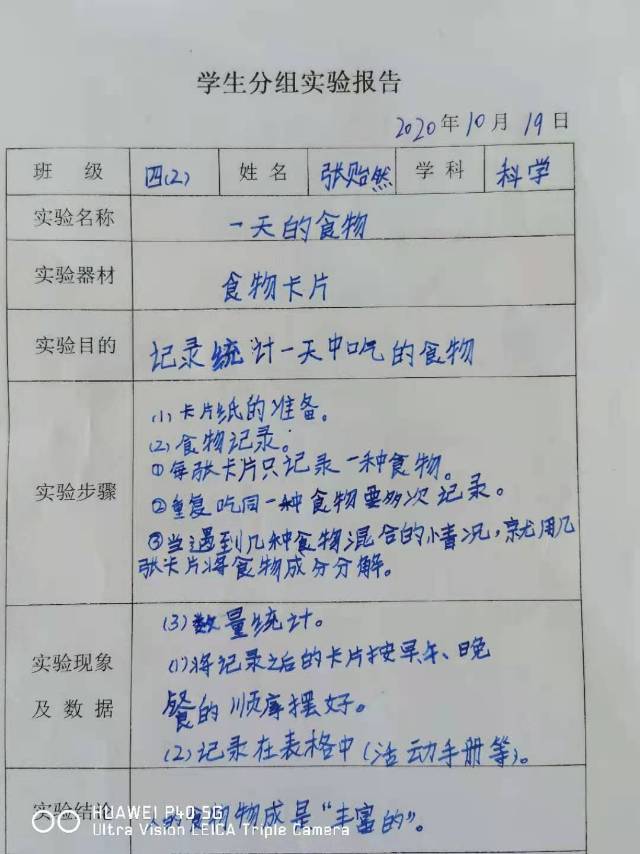 学生分组实验报告
2020年10月19日
班 级 四(2) 姓 名 张贻然 学 科 科学
实验名称 一天的食物
实验器材 食物卡片
实验目的 记录统计一天中吃的食物
实验步骤
(1)卡片纸的准备。
(2)食物记录。
①每张卡片只记录一种食物。
②重复吃同一种食物要多次记录。
③当遇到几种食物混合的情况,就用几
张卡片将食物成分分解。
实验现象
及 数 据
(3)数量统计。
(1)将记录之后的卡片按早午、晚
餐的顺序摆好。
(2)记录在表格中(活动手册等)。
实验结论 的食物成是“丰富的”。
HUAWEI P40 5G
Ultra Vision LEICA Triple Camera